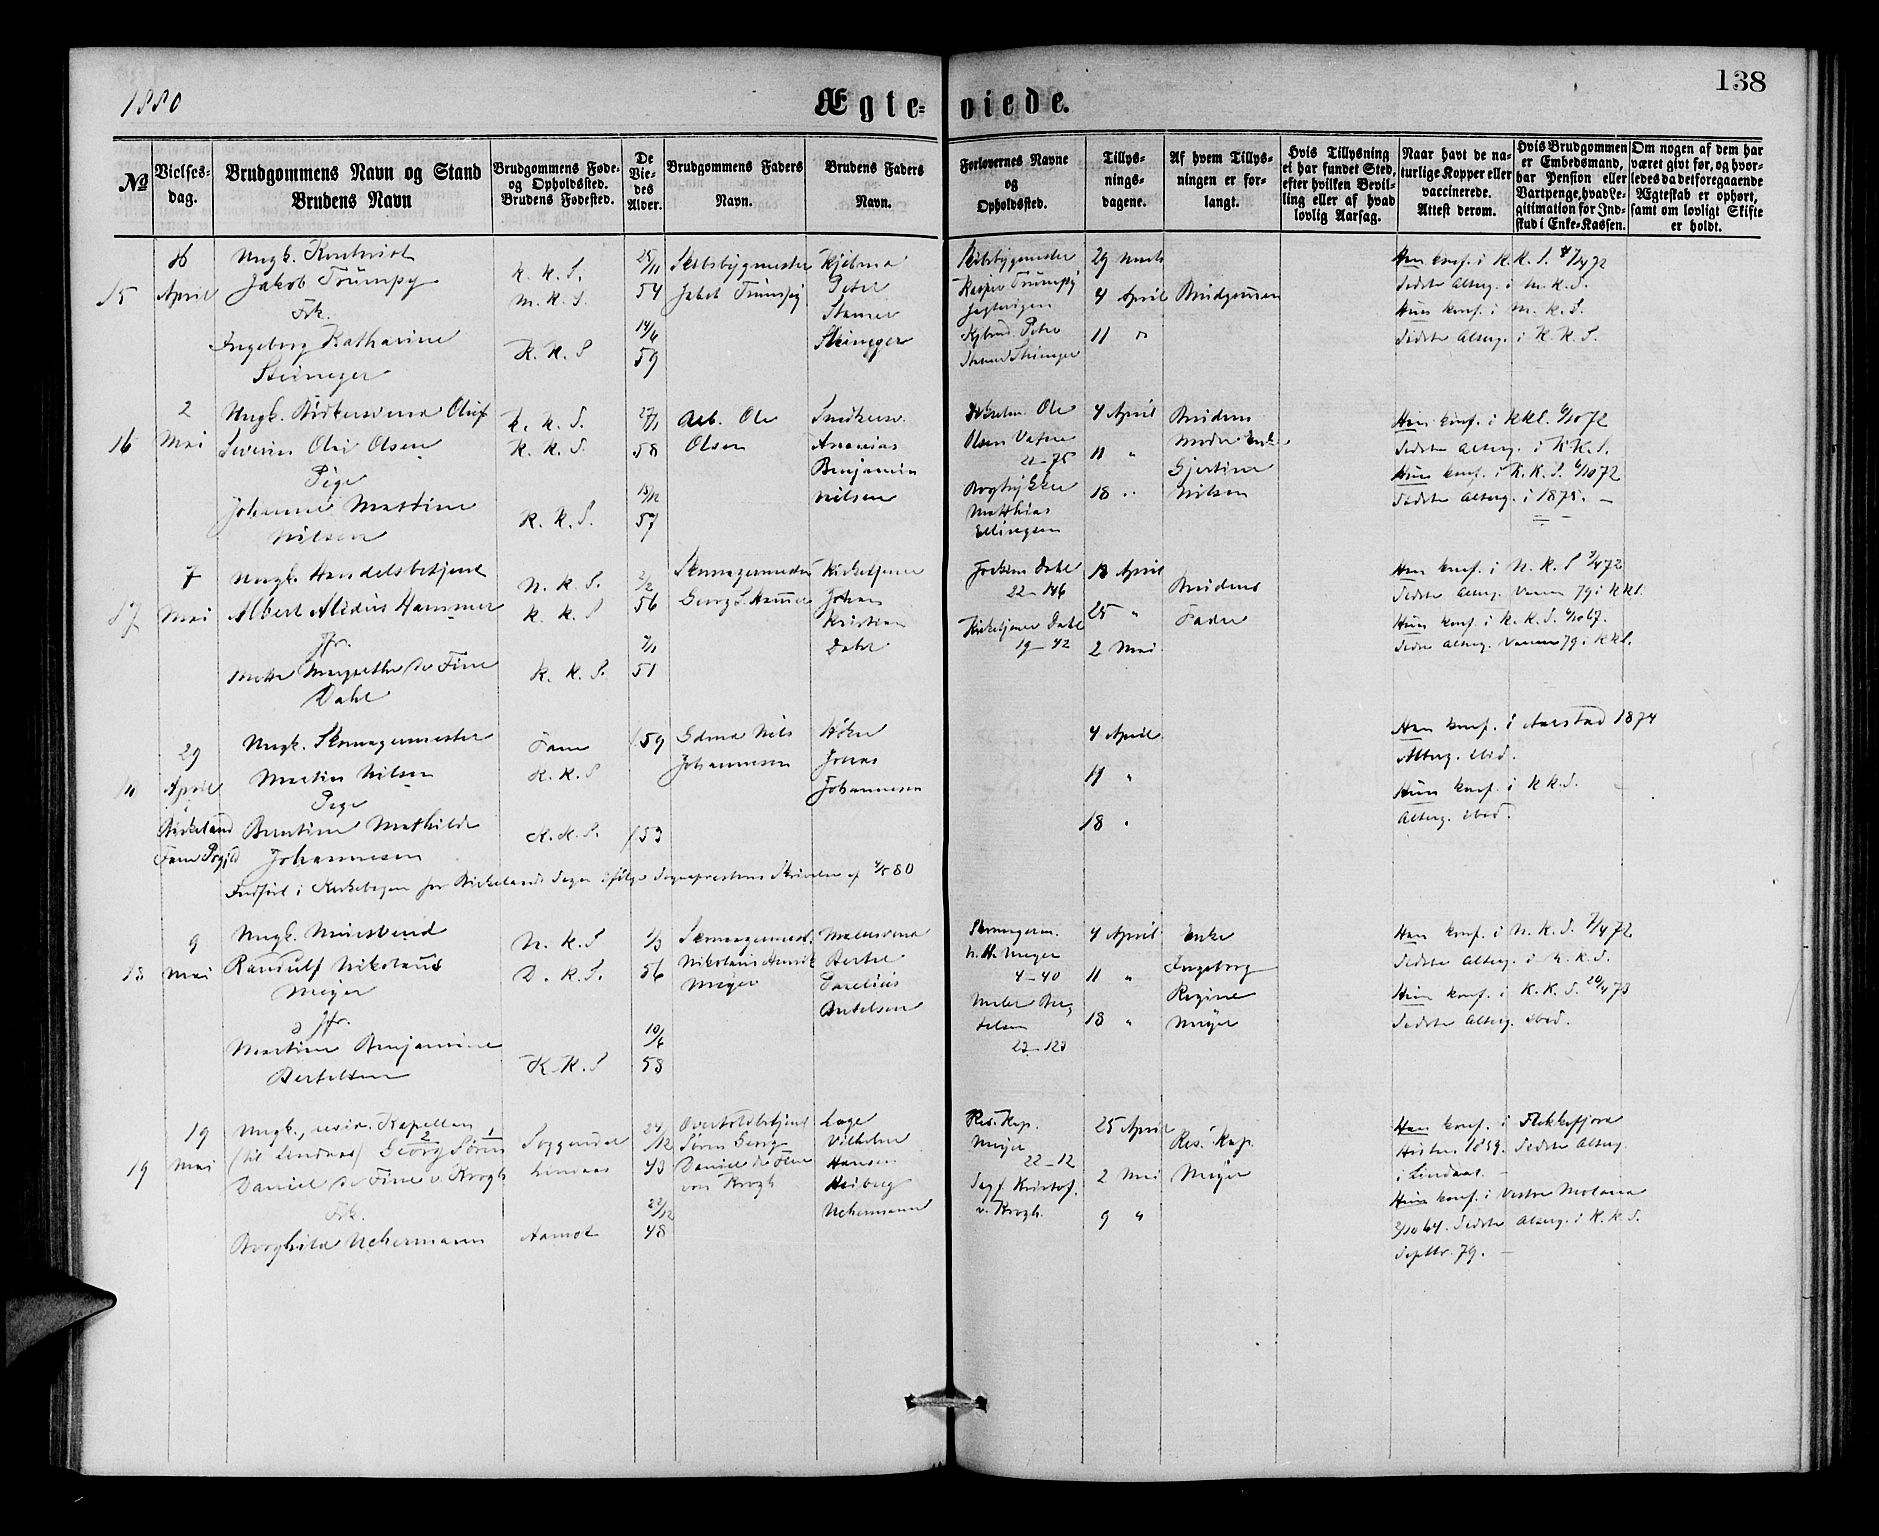 1880
Ægte-
viede.
138
No
Vielses-
dag.
Brudgommens Navn og Stand
Brudens Navn
Brudgommens Føde-
og Opholdssted.
Brudens Fødested.
De
Vie-
des
Alder.
Brudgommens Faders
Navn.
Brudens Faders
Navn.
Forlovernes Navne
og
Opholdssted.
Tillys-
nings-
dagene.
Af hvem Tillys-
ningen er for-
langt.
Hvis Tillysning
ei har fundet Sted,
efter hvilken Bevil-
ling eller af hvad
lovlig Aarsag.
Naar havt de na-
turlige Kopper eller
vaccinerede.
Attest derom.
Hvis Brudgommen
er Embedsmand,
har Pension eller
Vartpenge, hvad Le-
gitimation for Ind-
skud i Enke-Kassen.
Om nogen af dem har
været givt før, og hvor-
ledes da det foregaaende
Ægteskab er ophørt,
samt om lovligt Skifte
er holdt.
15
April
Ungk. Kontorist
Jakob Trümpy
Frk.
Ingeborg Katharine
Steinegger
K. K. S.
M. K. S.
K. K. S
25/11
54
14/6
59
Skibsbygmester
Jakob Trümpy
Peter
Skibsbygmester
Kasper Trümpy
29 Marts
4 April
11 "
Brudgommen
Han konf. i K. K. S.
Sidste Alterg. i M. K. S.
Hun konf. i M. K. S.
Sidste Alterg. i K. K. S.
16
2
Mai
Severin Olai Olsen
Pige
Johanne Martine
Nilsen
K. K. S.
K. K. S.
K. K. S.
27/1
58
18/12
57
Arb. Ole
Olsen
Ananias
Benjamin
Nilsen
Ole
Olsen
22-75
Matthias
Ellingsen
4 April
11 "
18 "
Brudens
Moder Enke
Gjertine
Nilsen
Han konf. i KKS. 6/10 72
Sidste Alterg. i K.K.S.
Hun konf. i K.K.S. 6/10 72
Sidste Alterg. i 1875. —
17
7
Mai
Ungk. Handelsbetjent
Albert Alidius Hammer
Jfr.
Mette Margrethe de Fine
Dahl
N. K. S.
K. K. S
K. K. S.
2/2
56
51
Skomagermester
Georg S. Hammer
Kirketjener
Johan
Kristian
Dahl
Jochum Dahl
22-146
Kirketjener Dahl
19-42
18 April
25 "
2 Mai
Brudens
Fader
Han konf. i N. K. S 7/4 72
Sidste Alterg. Vaaren 79 i KKS.
Hun konf. i K. K. S. 6/10 67.
Sidste Alterg. Vaaren 79 i KKS.
29
April
Birkeland
Fane Prgjd
Ungk. Skomagermester
Martin Nilsen
Pige
Berntine Mathilde
Johannesen
Fane
K. K. S
K. K. S.
59
53
Nils
Johannesen
Jonas
Johannesen
4 April
11 "
18 "
Han konf. i Aarstad 1874
Alterg. ibid.
Hun konf. i K K. S.
Alterg. ibid.
Indført i Kirkebogen for Birkelands Sogn ifølge Sognepræstens Skrivelse af 4/5 80
18
9
Mai
Ungk. Mursvend
Randulf Nikolaus
Meyer
Jfr.
Martine Benjamine
Bertelsen
N. K. S
D. K. S.
K. K. S
1/3
56
10/6
58
Skomagermest.
Nikolaus Henrik
Meyer
Malersvend
Bertel
Bertelsen
Skomagerm.
N. H. Meyer
4-40
Maler Ber-
telsen
23-123
4 April
11 "
18 "
Enke
Ingeborg
Regine
Meyer
Han konf. i N. K. S. 7/4 72
Sidste Alterg. i N. K. S.
Hun konf. i K. K. S. 20/4 73
Sidste Alterg. ibid.
19
19
Mai
Ungk., resid. Kapellan
(til Lindaas) Georg Søren
Daniel de Fine v. Krogh
Frk.
Borghild Uchermann
Soggendal
Lindaas
Aamot
24/12
43
22/12
48
Søren Georg
Daniel de Fine
von Krogh
Læge
Vilhelm
Hansen
Heiberg
Uchermann
Res. Kap.
Meyer
22-12
Sagf. Kristof.
v. Krogh.
25 April
2 Mai
9 "
Res. Kap.
Meyer
Han konf. i Flekkefjord
Høsten 1859. Sidste Alterg.
i Lindaas. —
Hun konf. i Vestre Moland
2/10 64. Sidste Alterg. i K. K. S.
Septbr. 79. —